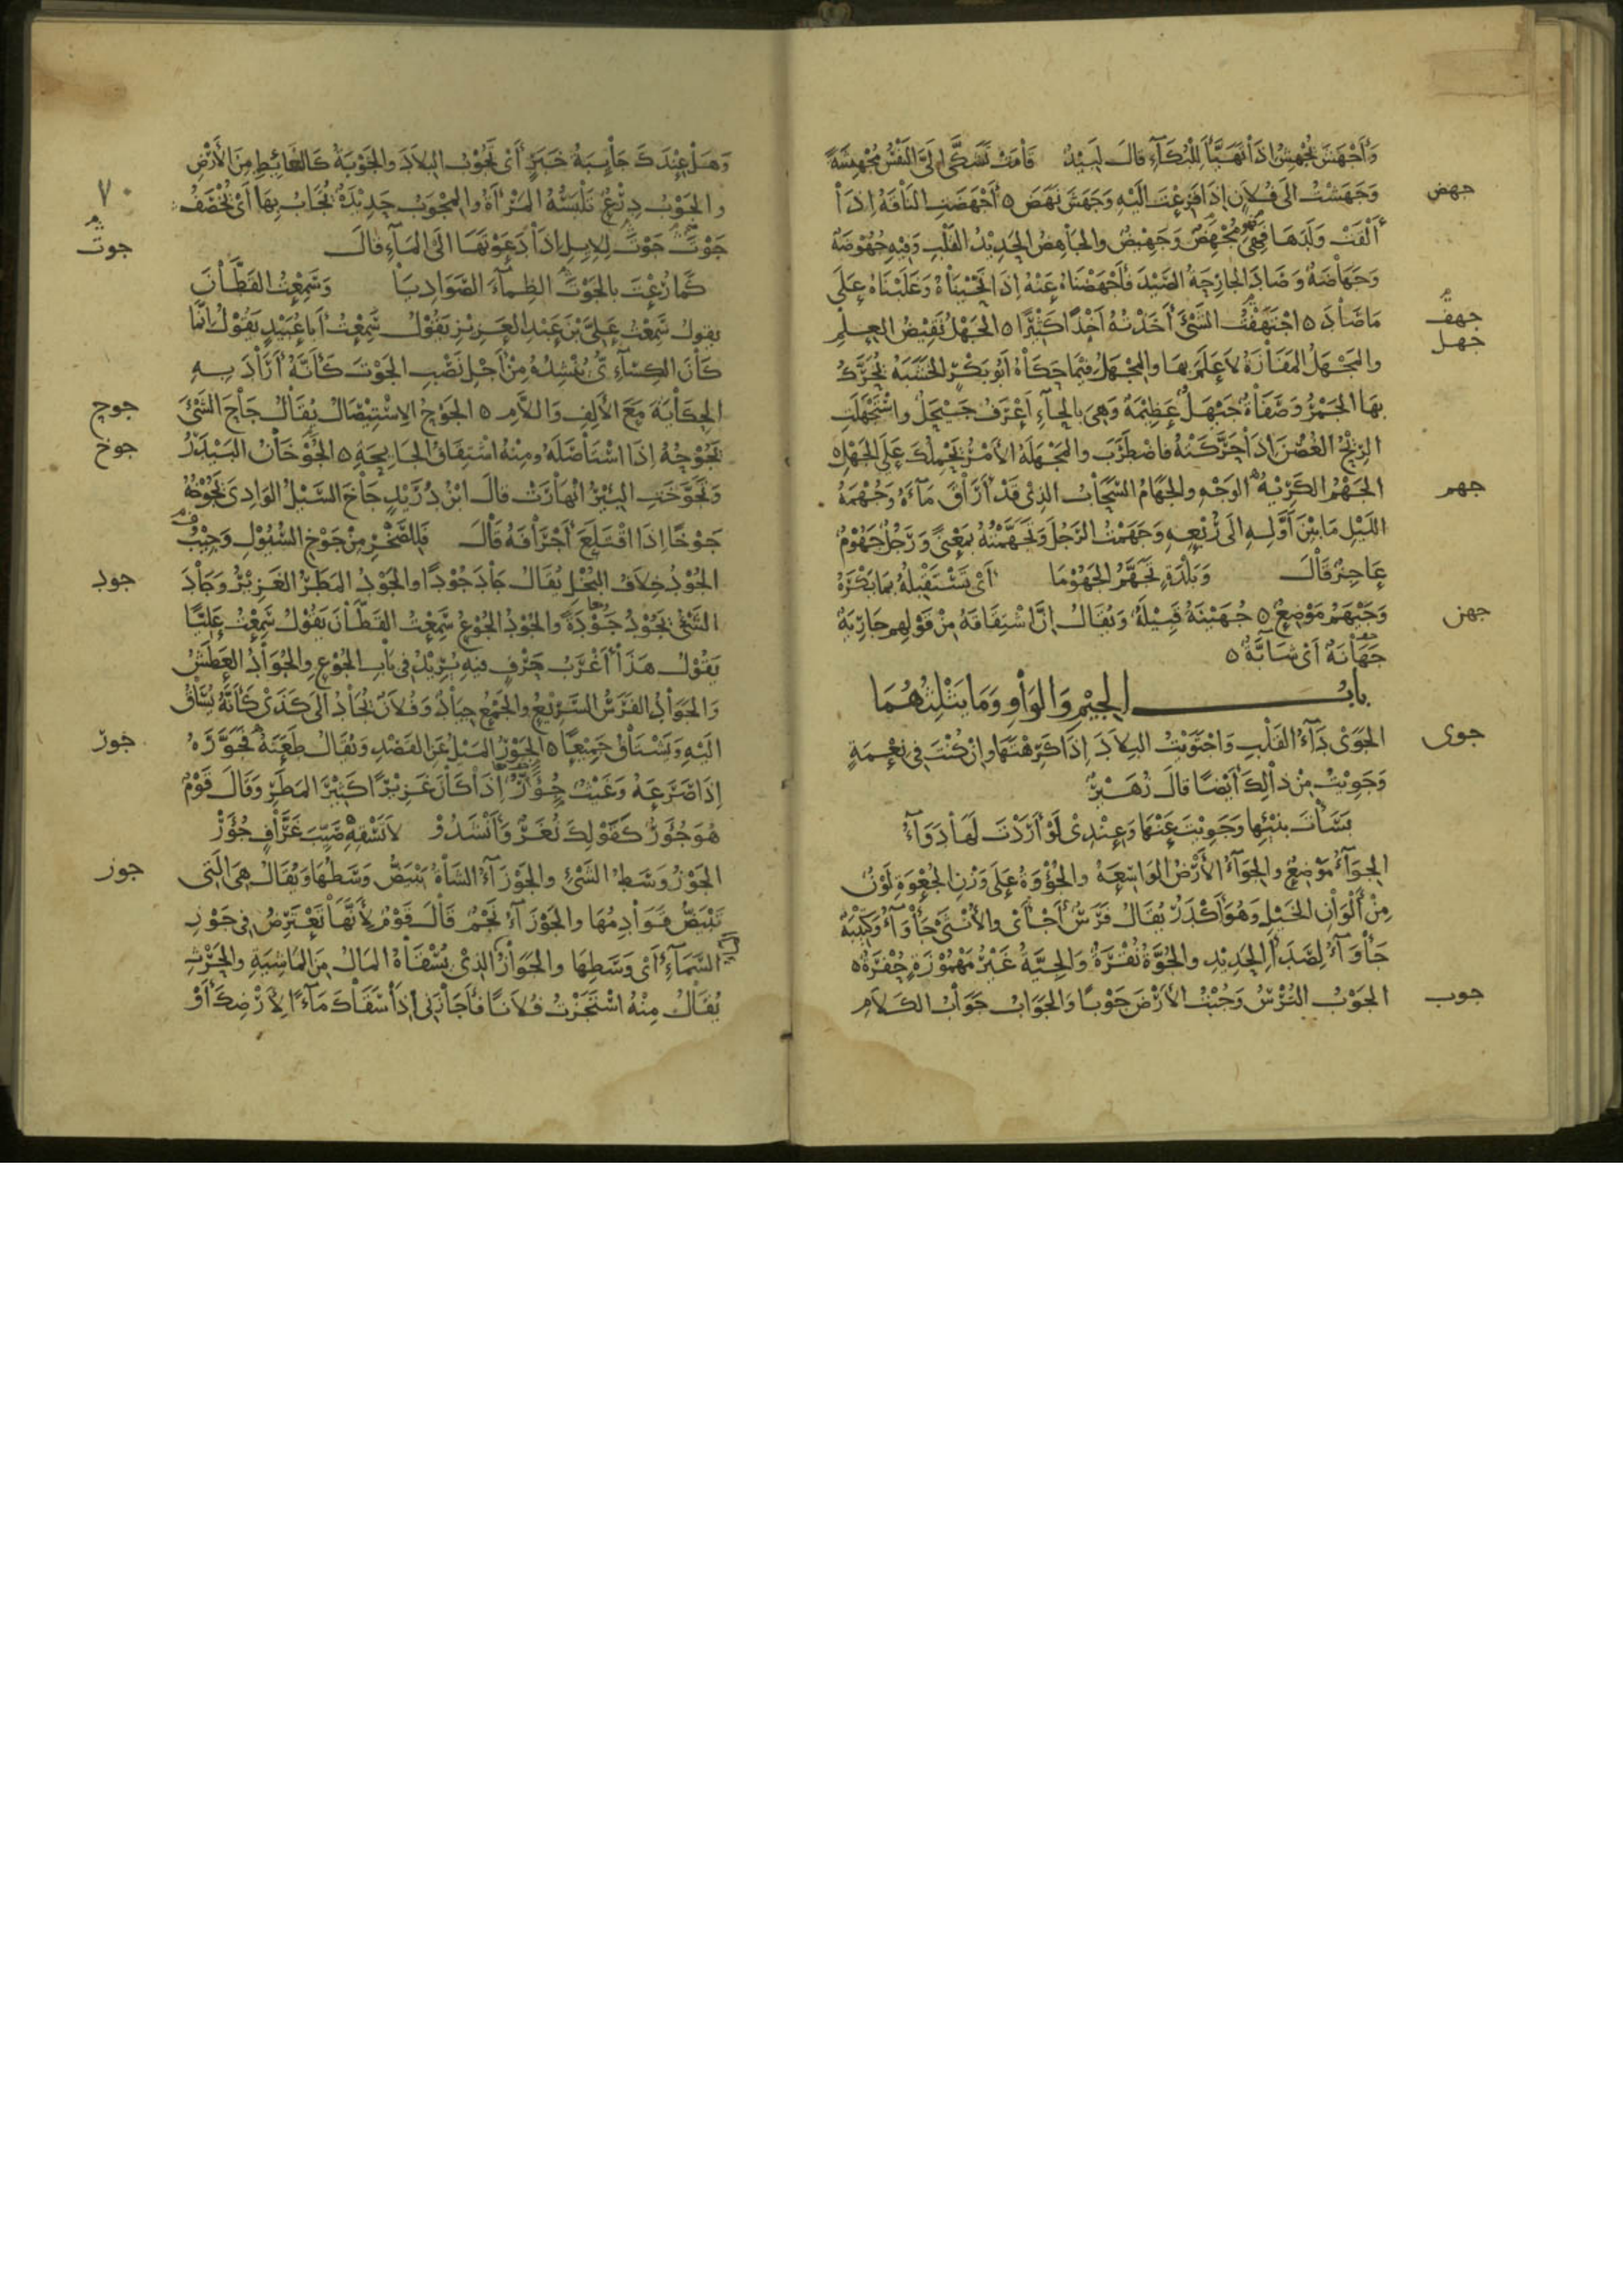 وأجهش يجهش إذا تهيأ للبكاء قال لبيد قامت تشكى إلي النفس مجهشة
جهض
وجهشت الى فلان إذا فزعت اليه وجهش نهض ه أجهضت الناقة إذا
ألقت ولدها فهي مجهض وجهيض والجاهض الحديد القلب وفيه جهوضة
وجهاضة وصاد الجارحة الصيد فأجهضناه عنه إذا نحيناه وغلبناه على
جهف
ما صاد ه اجتهفت الشئ أخذته أخذا كثيرا ه الجهل نقيض العلم
جهل
والمجهل المفازة لا علم بها والمجهل فيما حكاه أبو بكر الخشبة يحرك
بها الجمر وصفاة جيهل عظيمة وهي بالحاء أعرف جيحل واستجهلت
الريح الغصن إذا حركته فاضطرب والمجهلة الأمر يحملك على الجهل ه
جهم
الجهم الكريه الوجه والجهام السحاب الذي قد أراق ماءه وجهمة
الليل ما بين أوله الى ربعه وجهمت الرجل وتجهمته بمعنى ورجل جهوم
عاجز قال وبلدة تجهم الجهوما أي تستقبله بما يكره
جهن
وجيهم موضع ه جهينة قبيلة ويقال إن اشتقاقه من قولهم جارية
جهانة أي شابة ه
باب الجيم والواو وما يثلثهما
جوى
الجوى داء القلب واجتويت البلاد إذا كرهتها وإن كنت في نعمة
وجويت من ذالك أيضا قال زهير
بشأت بنيئها وجويت عنها وعندي لو أردت لها دواء
الجواء موضع والجواء الأرض الواسعة والجؤوة على وزن الجعوة لون
من ألوان الخيل وهو أكدر يقال فرس أجأى والأنثى جأواء وكتيبة
جأواء لصدا الحديد والجوة نقرة والجية غير مهموزة حفرة ه
جوب
الجوب الترس وجبت الأرض جوبا والجواب جواب الكلام
وهل عندك جايبة خبر أي تجوب البلاد والجوبة كالغائط من الأرض
٧٠
والجوب درع تلبسه المرأة والمجوب حديدة يجاب بها أي يخصف
جوت
جوت جوت للإبل إذا دعوتها الى الماء قال
كما رعت بالجوت الظماء الصواديا وسمعت القطان
يقول سمعت علي بن عبد العزيز يقول سمعت أبا عبيد يقول إنما
كان الكسائي ينشده من أجل نصب الجوت كأنه أراد به
جوح
الحكاية مع الألف واللام ه الجوح الاستيصال يقال جاح الشئ
جوخ
يجوحه إذا استأصله ومنه اشتقاق الجايحة ه الجوخان البيدر
وتجوخت البئر انهارت قال ابن دريد جاخ السيل الوادي يجوخه
جوخا إذا اقتلع أجرافه قال فللصخر من جوخ السيول وجيب
جود
الجود خلاف البخل يقال جاد جودا والجود المطر الغزير وجاد
الشئ يجود جودة والجود الجوع سمعت القطان يقول سمعت عليا
يقول هذا أغرب حرف فيه يريد في باب الجوع والجواد العطش
والجواد الفرس السريع والجمع جياد وفلان يجاد الى كذى كأنه يساق
جور
اليه ويشتاق جميعا ه الجور الميل عن القصد ويقال طعنه فجوره
إذا صرعه وغيث جور إذا كان غزيرا كثير المطر وقال قوم
هو جؤر كقولك نغر وأنشدو لا تسقه صيب عزاف جؤر
جوز
الجوز وسط الشئ والجوزاء الشاة يبيض وسطها ويقال هي التي
تبيض قوادمها والجوزاء نجم قال قوم لأنها تعترض في جوز
السماء أي وسطها والجواز الذي يسقاه المال من الماشية والحرث
يقال منه استجزت فلانا فأجازني إذا سقاك ماء لأرضك أو